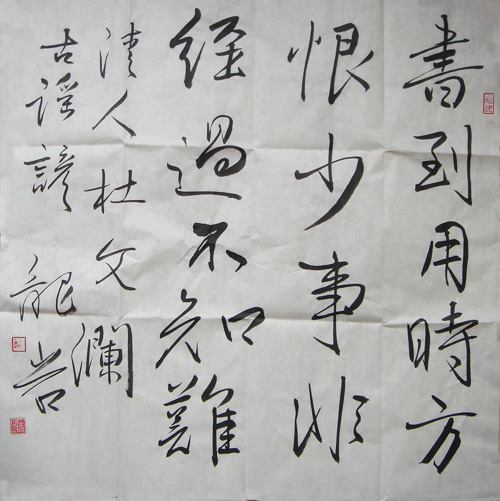 書到用時方
恨少事非
經過不知難
清人杜文瀾
古謡諺 龍岩